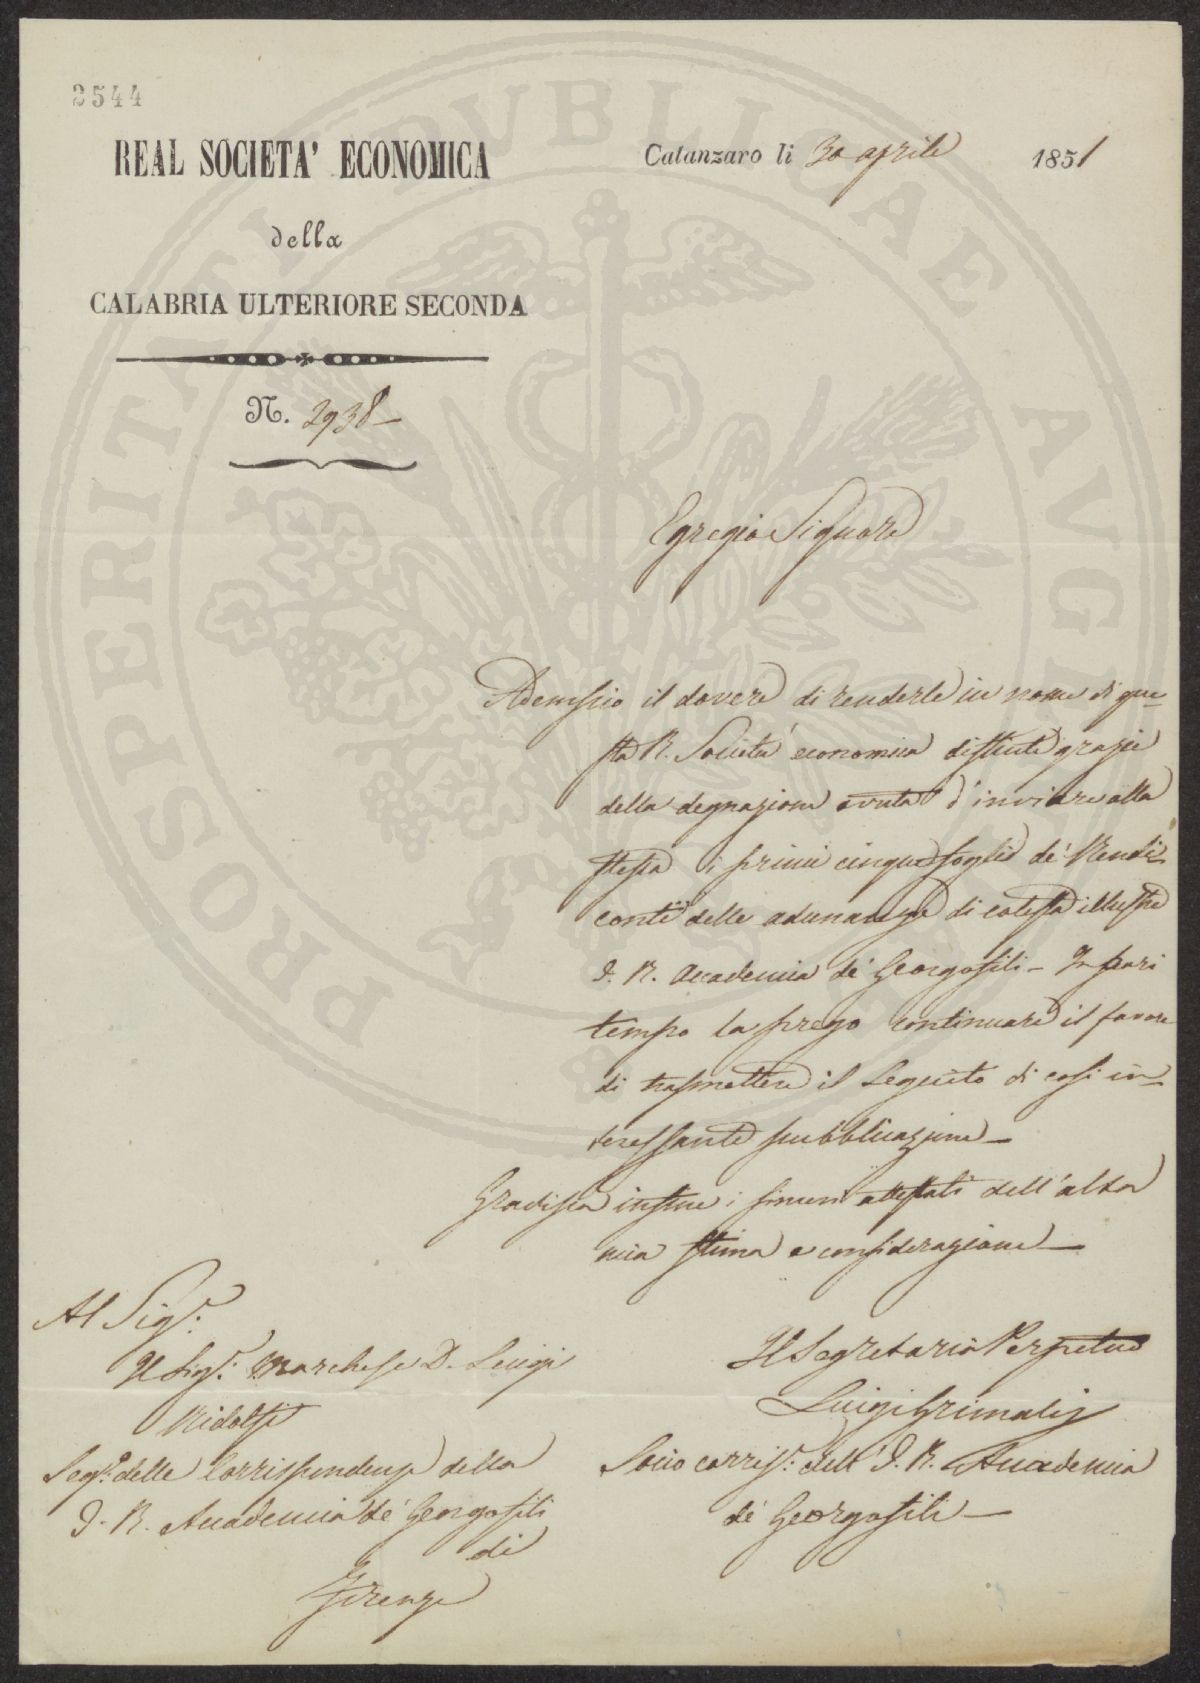 2544
REAL SOCIETA' ECONOMICA
della
CALABRIA ULTERIORE SECONDA
N. 2938
Catanzaro li 30 aprile 1851
Egregio Signore
Adempio il dovere di renderle in nome di que-
sta R. Società economica distinte grazie
della degnazione avuta d'inviare alla
stessa i primi cinque foglj de' Rendi-
conti delle adunanze di cotesta illustre
I. R. Accademia de' Georgofili – In pari
tempo la prego continuare il favore
di trasmettere il seguito di così in-
teressante pubblicazione –
Gradisca infine i sinceri attestati dell'alta
mia stima e considerazione –
Il Segretario Perpetuo
Luigi Grimaldi
Socio corrisp. dell'I. R. Accademia
de' Georgofili –
Al Sigr.
Il Sigr. Marchese D. Luigi
Ridolfi
Segr. delle Corrispondenze della
I. R. Accademia de' Georgofili
di
Firenze
PROSPERITATI PUBLICAE AUGENDAE